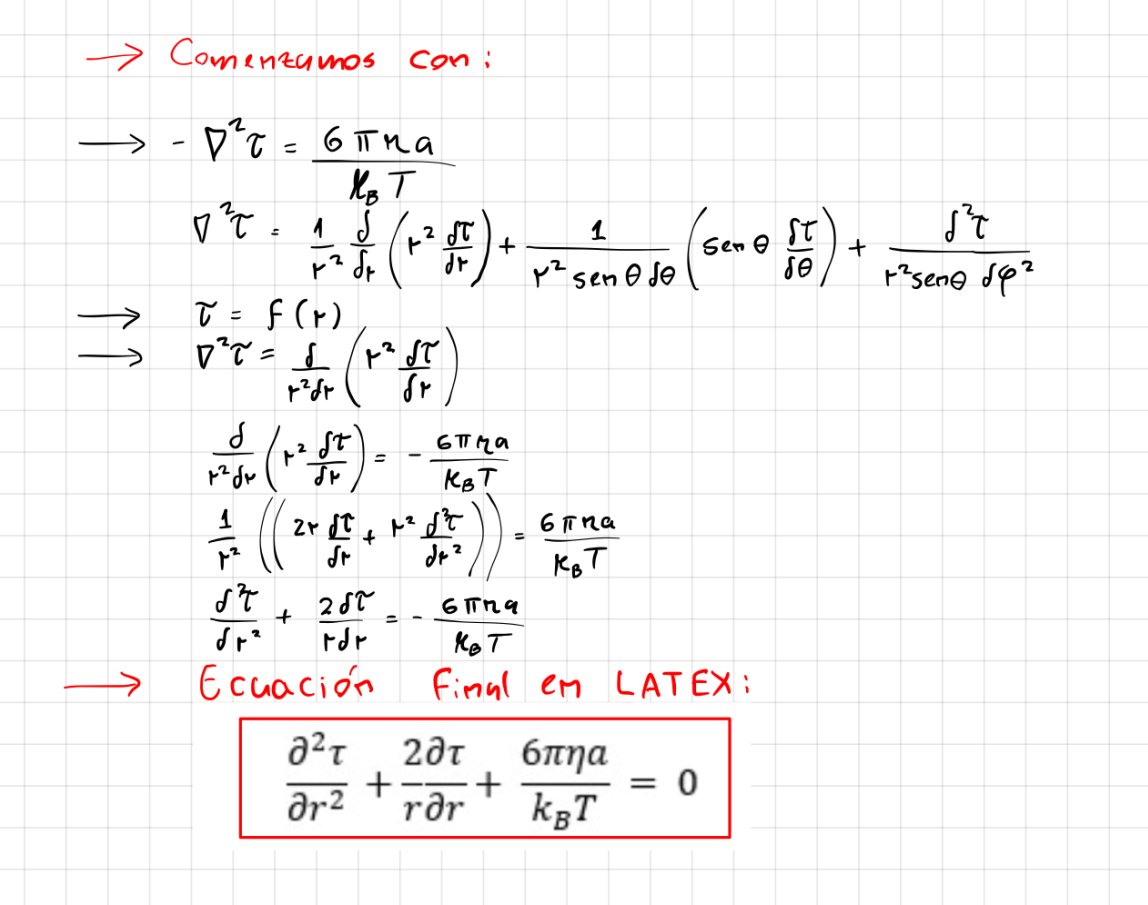 → Comenzamos con:
→ - ∇²τ = 6πηa / k_B T
∇²τ = 1/r² ∂/∂r (r² ∂τ/∂r) + 1/(r² sen θ ∂θ) (sen θ ∂τ/∂θ) + ∂²τ/(r² senθ ∂φ²)
→ τ = f(r)
→ ∇²τ = ∂/(r²∂r) (r² ∂τ/∂r)
∂/(r²∂r) (r² ∂τ/∂r) = - 6πηa / k_B T
1/r² ((2r ∂τ/∂r + r² ∂²τ/∂r²)) = 6πηa / k_B T
∂²τ/∂r² + 2∂τ/(r∂r) = - 6πηa / k_B T
→ Ecuación Final en LATEX:
∂²τ/∂r² + 2∂τ/(r∂r) + 6πηa / k_B T = 0